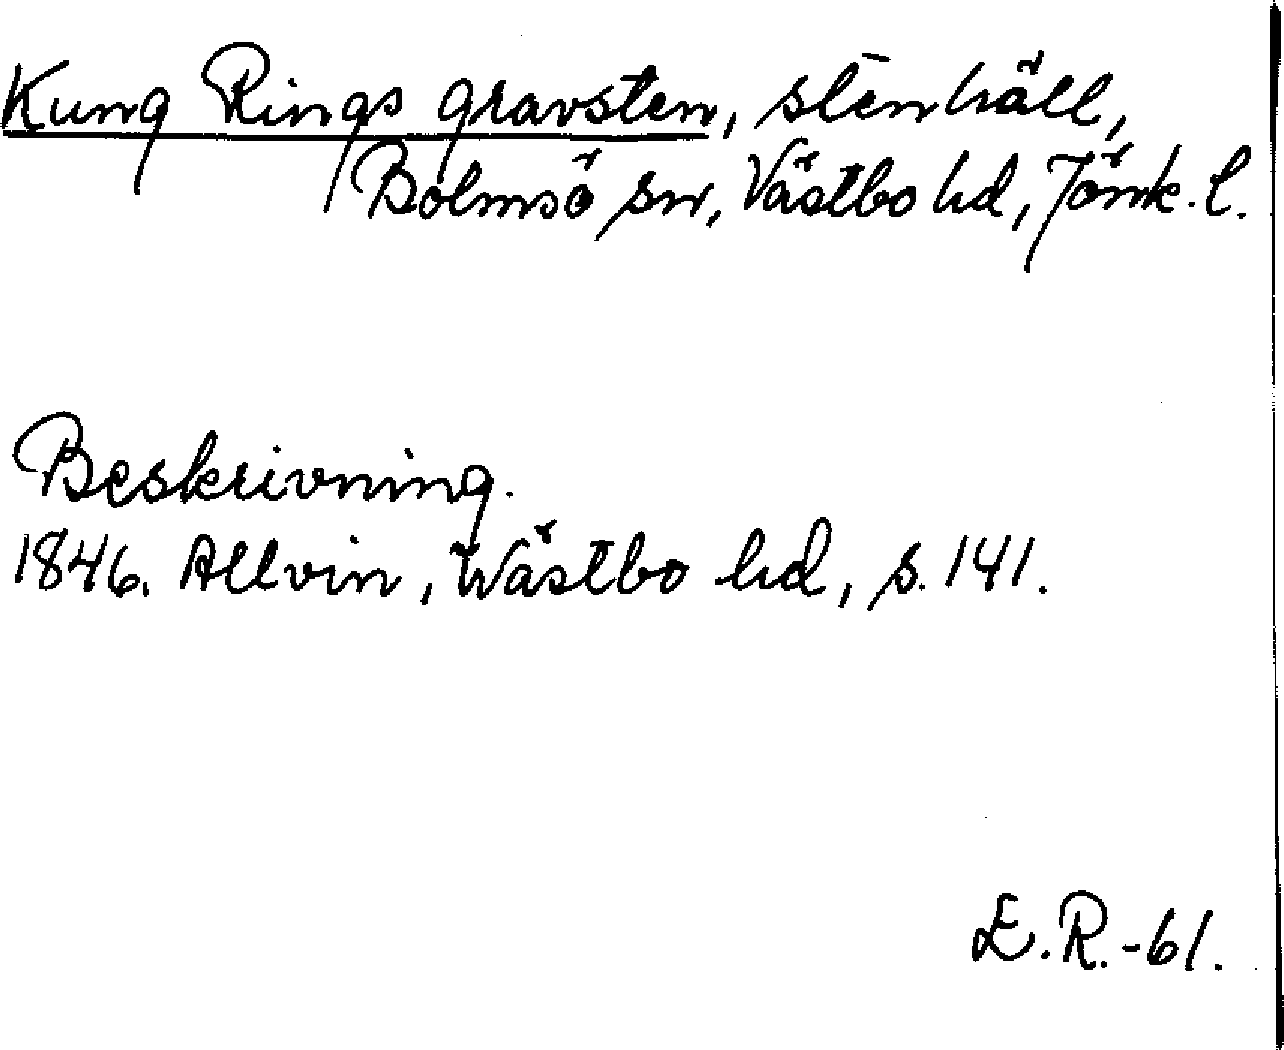 Kung Rings gravsten, stenhäll,
Bolmsö sn, Västbo hd, Jönk. l.
Beskrivning.
1846. Allvin, Wästbo hd, s. 141.
E. R. -61.